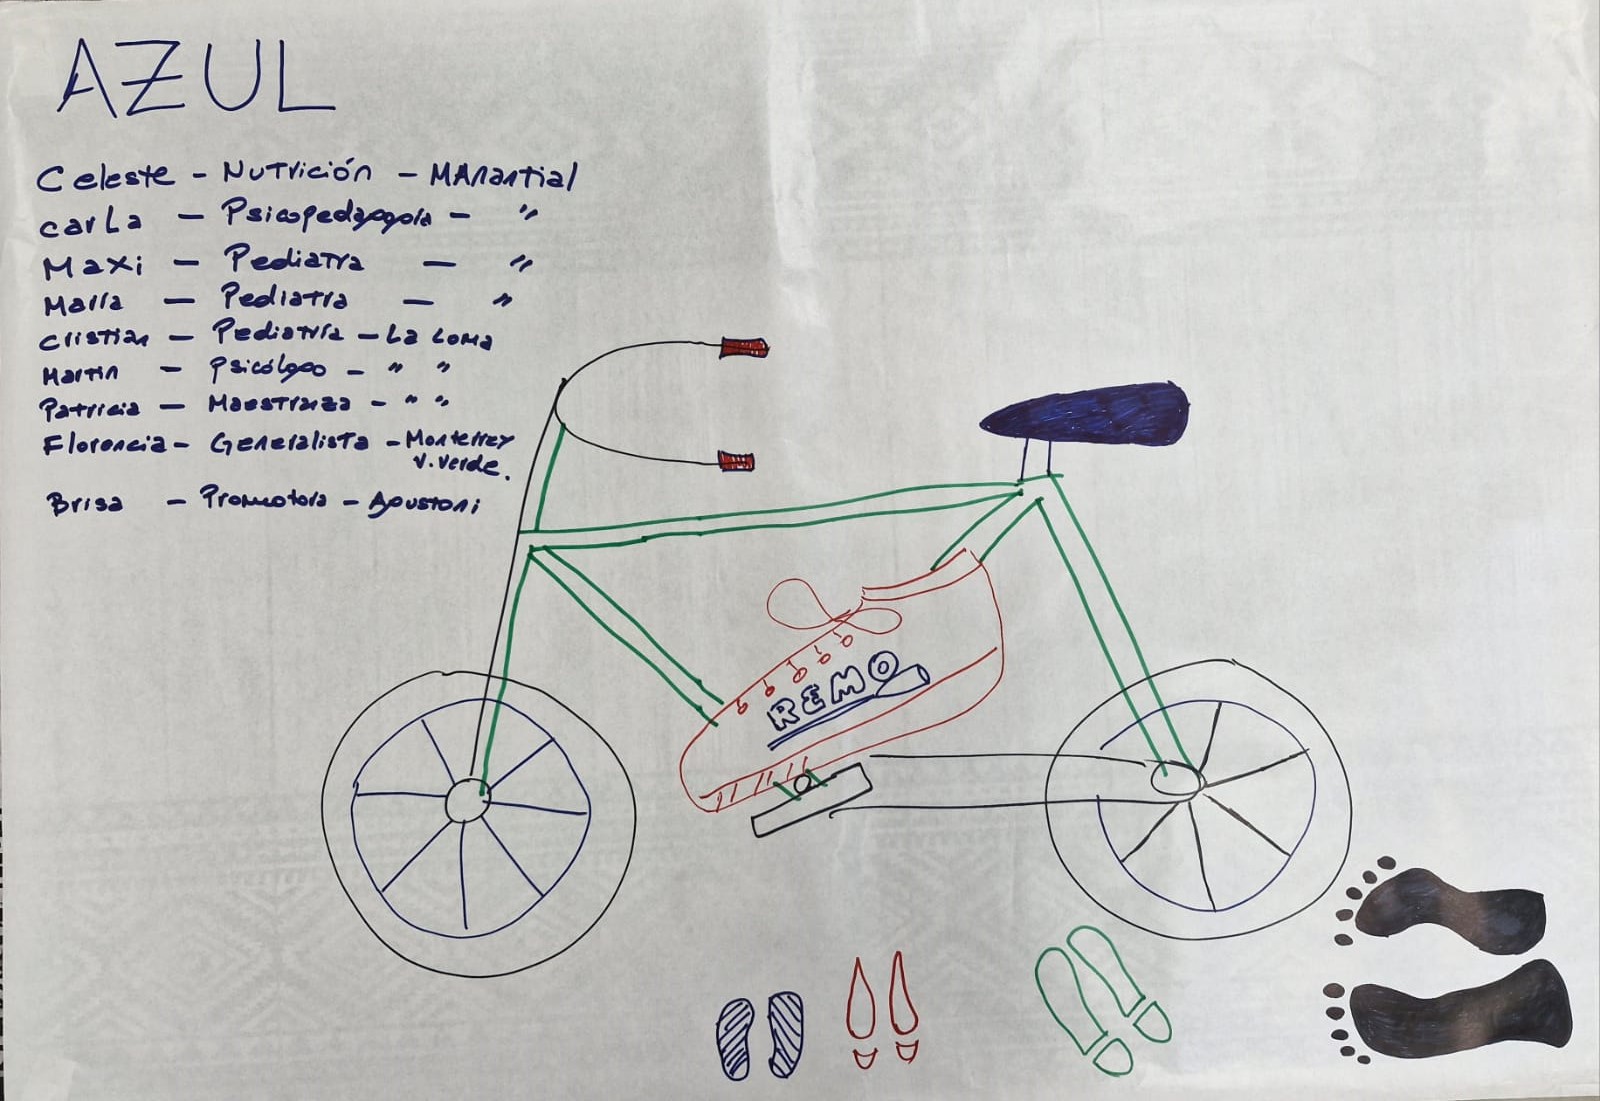 AZUL
Celeste - Nutrición - MAnantial
carLa - Psicopedagogía - "
Maxi - Pediatra - "
María - Pediatra - "
cristian - Pediatría - La Loma
Martin - Psicólogo - " "
Patricia - Maestranza - " "
Florencia - Generalista - Monterrey
V. Verde.
Brisa - Promotora - Agustoni
REMO